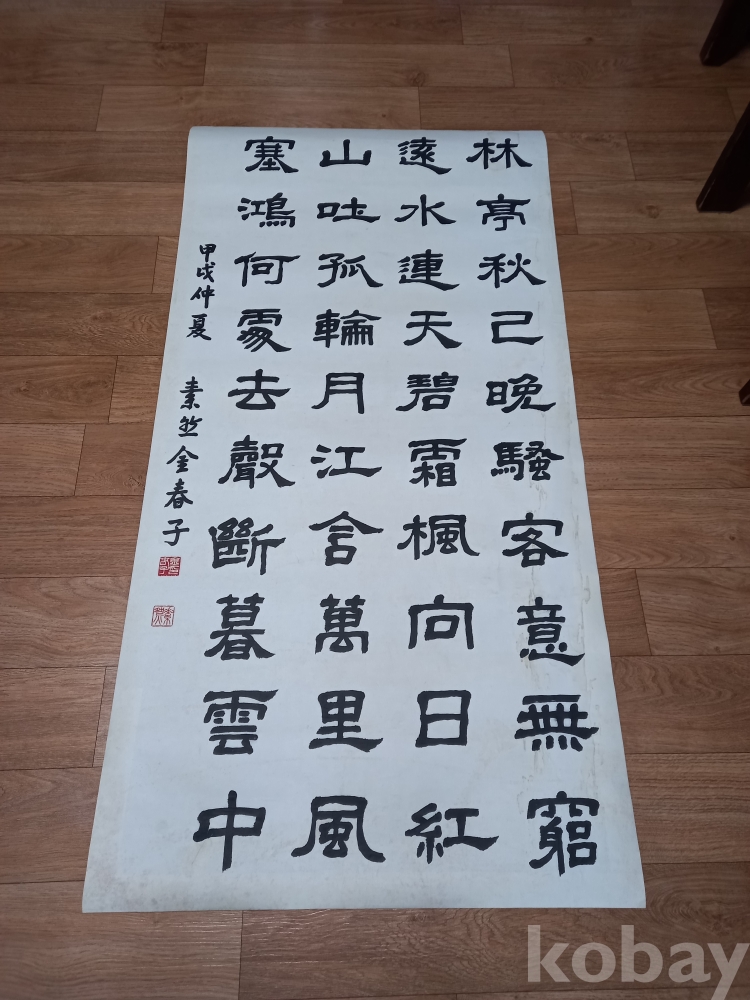 林亭秋已晚騷客意無窮
遠水連天碧霜楓向日紅
山吐孤輪月江含萬里風
塞鴻何處去聲斷暮雲中
甲戌仲夏 素丝金春子
kobay